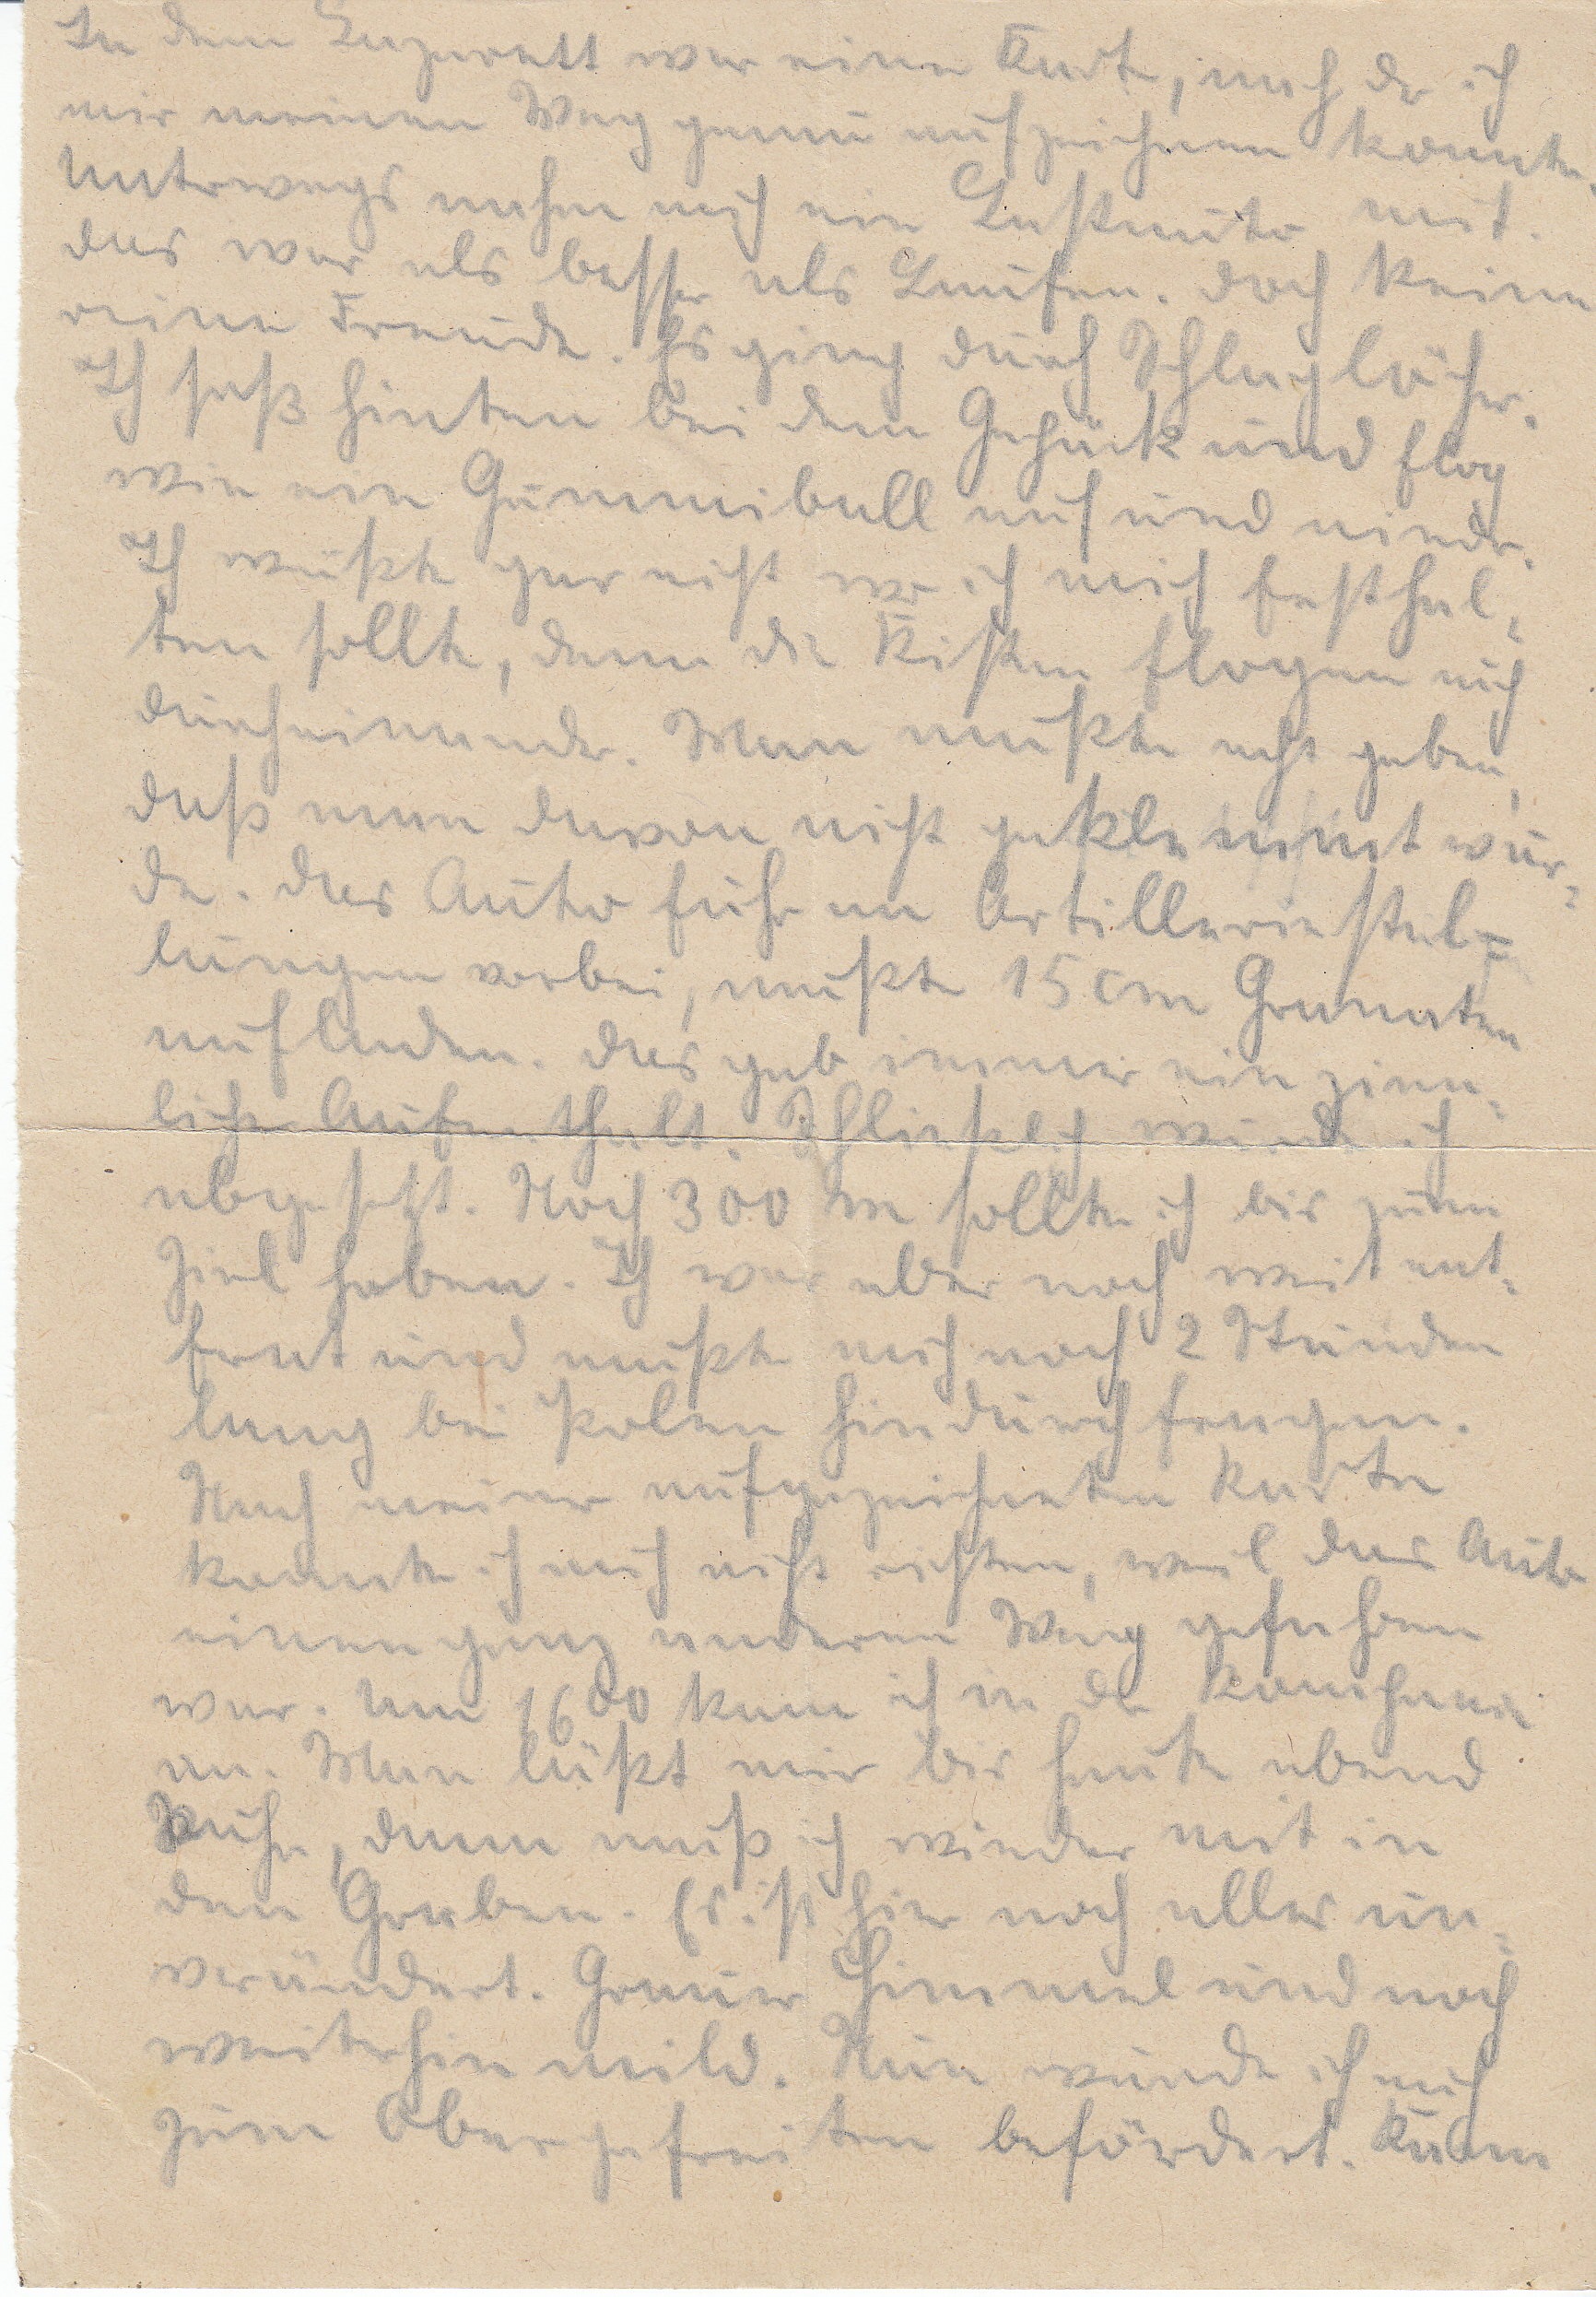 In dem Lazarett war eine Karte, nach der ich
mir meinen Weg genau aufzeichnen konnte.
Unterwegs nahm mich ein Lastauto mit.
das war als besser als Laufen. doch keine
reine Freude. Es ging durch Schlaglöcher.
Ich saß hinten bei dem Gepäck und flog
wie ein Gummiball auf und nieder.
Ich wußte gar nicht wo ich mich festhal-
ten sollte, denn die Kisten flogen auch
durcheinander. Man mußte acht geben,
daß man davon nicht geklemmt wur-
de. das Auto fuhr an Artilleriestel-
lungen vorbei, mußte 15 cm Granaten
aufladen. das gab immer ein ziem-
licher Aufenthalt. Schließlich wurde ich
abgesetzt. Noch 300 m sollte ich bis zum
Ziel haben. Ich war aber noch weit ent-
fernt und mußte mich noch 2 Stunden
lang bei Polen hindurchfragen.
Nach meiner aufgezeichneten Karte
konnte ich mich nicht richten, weil das Auto
einen ganz anderen Weg gefahren
war. Um 1600 kam ich in der Kompanie
an. Man läßt mir bis heute abend
Ruhe, dann muß ich wieder mit in
den Graben. Es ist hier noch alles un-
verändert. Grauer Himmel und noch
weiterhin mild. Nun wurde ich auch
zum Obergefreiten befördert. Kaum